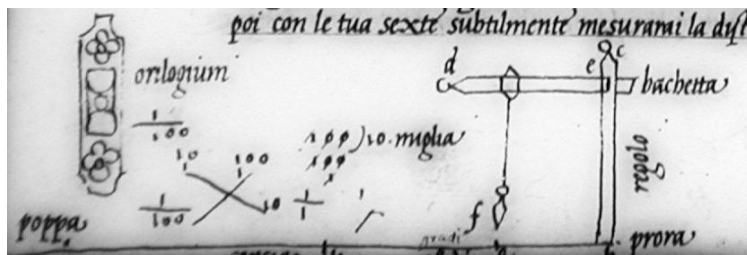 poi con le tua sexte subtilmente mesurarai la dist
orilogium
d
e
c
bachetta
1
100
10
100
100
100
1
) 10. miglia
1
100
10
1
1
regolo
f
poppa
gradi
prora